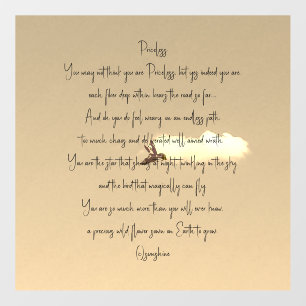 Priceless
You may not think you are Priceless, but yes indeed you are,
each fiber deep within bears the road so far...
And oh, you do feel weary, on an endless path,
too much chaos and deliberated well-aimed wrath.
You are the star that shines at night, twinkling in the sky
and the bird that magically can fly.
You are so much more than you will ever know,
a precious wild flower sown on Earth to grow.
(c)sunshine